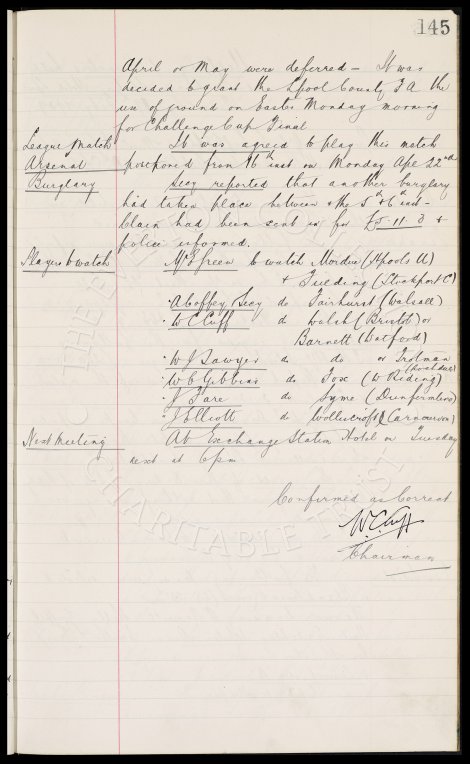 145
April or May were deferred – It was
decided to grant the L'pool County F A the
use of ground on Easter Monday morning
for Challenge Cup Final
League Match It was agreed to play this match
Arsenal postponed from 16th inst on Monday Apl 22nd
Burglary Secy reported that another burglary
had taken place between the 5th & 6th inst-
Claim had been sent in for £5-11-8 &
police informed.
Players to watch Mr Green to watch Mordue (Hpools U)
& Fielding (Stockport C)
A Coffey / Secy do Fairhurst (Walsall)
W C Cuff do Walsh (Bristol) or
Barnett (Watford)
W J Sawyer do do or Trotman
W C Gibbins do Fox (W Riding)
J Fare do Syme (Dunfermline)
J Elliott do Woollercroft (Carnarvon)
Next Meeting At Exchange Station Hotel on Tuesday
next at 6pm
Confirmed as Correct
W.C. Cuff
Chairman
CHARITABLE TRUST